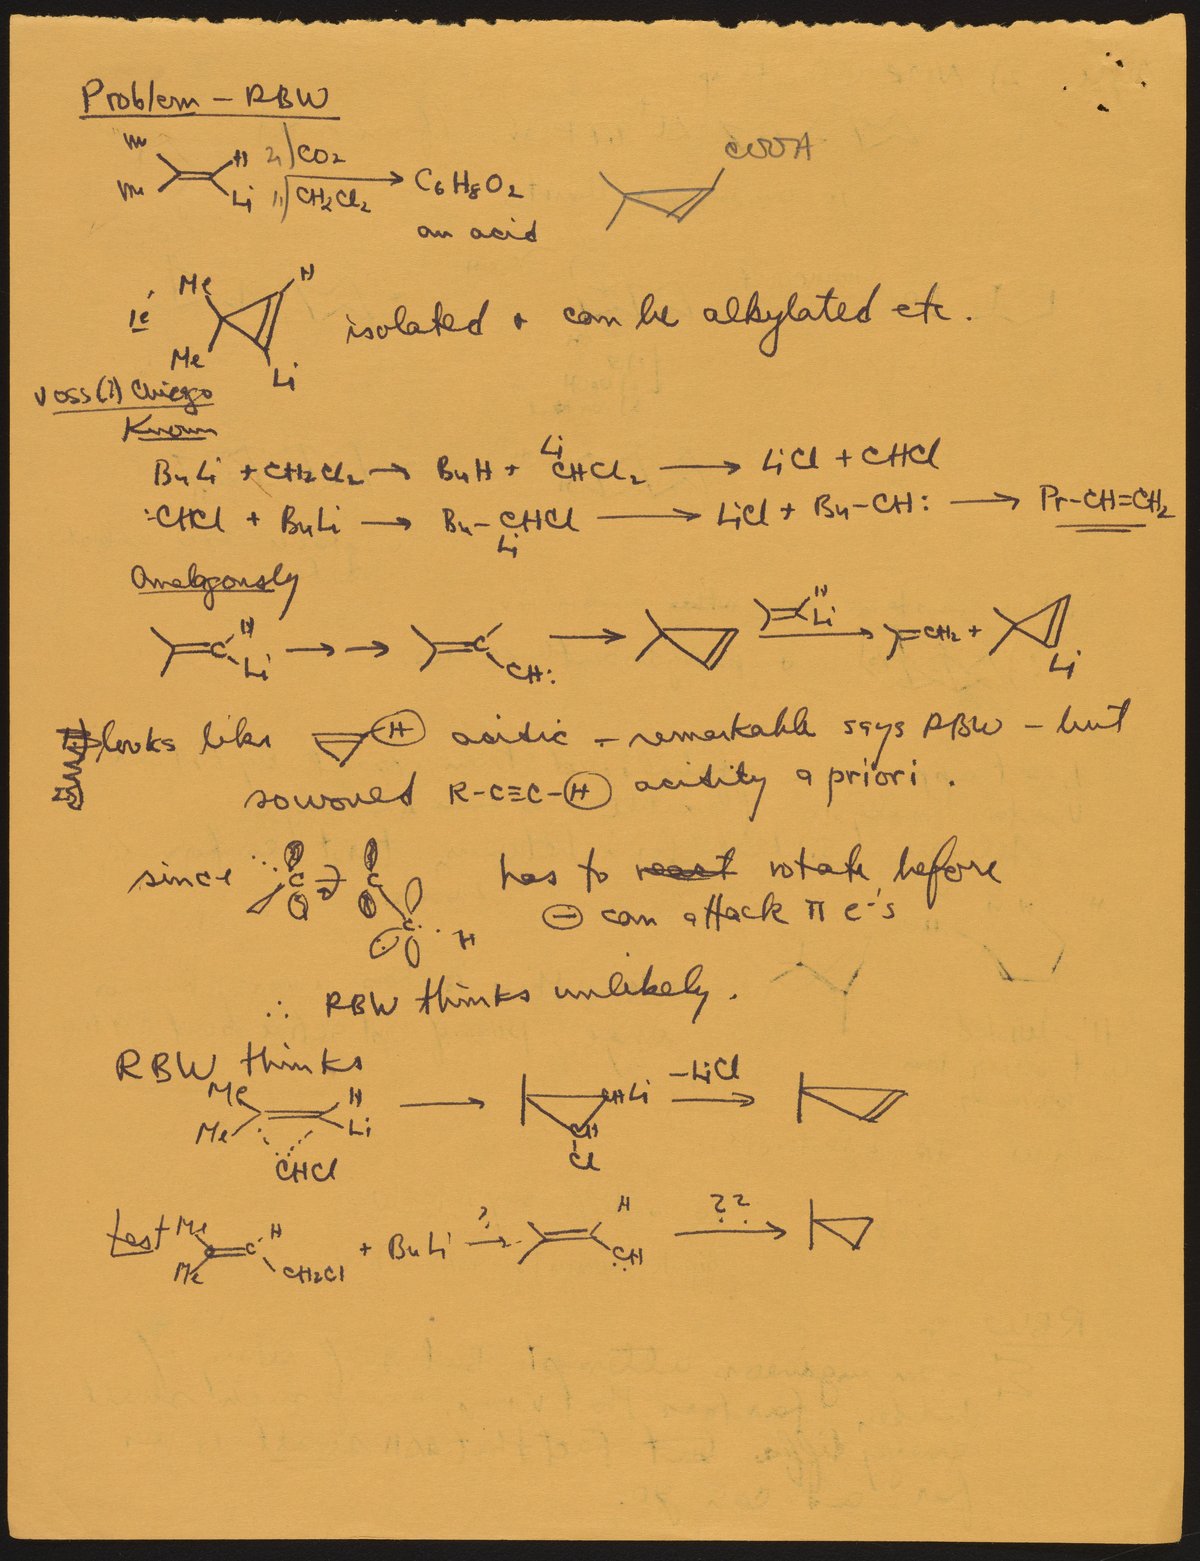 Problem – RBW
m
m
H
Li
2,) CO2
1,) CH2Cl2
C6H8O2
an acid
COOH
ie
Me
Me
H
Li
isolated + can be alkylated etc.
Voss(?) Chicago
Known
BuLi + CH2Cl2 → BuH + LiCHCl2 → LiCl + CHCl
:CHCl + BuLi → Bu–CHCl → LiCl + Bu–CH: → Pr–CH=CH2
Li
Analogously
C H Li →→ C CH: → H Li → =CH2 + Li
looks like H acidic – remarkable says RBW – but
so would R–C≡C–H acidity a priori.
since C C C H has to react rotate before
⊖ can attack π e-'s
∴ RBW thinks unlikely.
RBW thinks
Me Me H Li CHCl → CHLi CH Cl –LiCl →
test Me Me C H CH2Cl + BuLi ?→ H CH ?? →